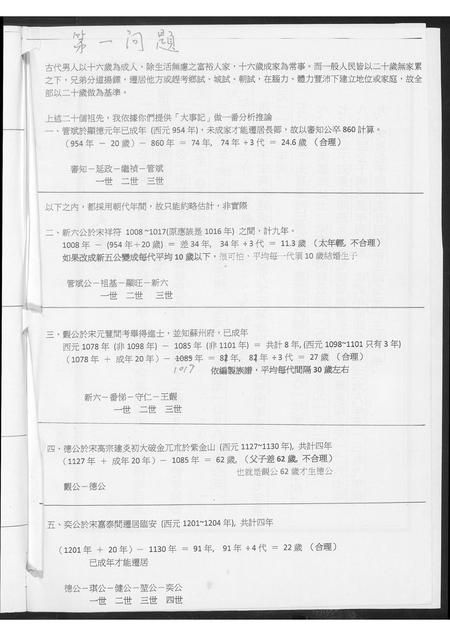 第一问题
古代男人以十六歲為成人、除生活無慮之富裕人家，十六歲成家為常事。而一般人民皆以二十歲無家累
之下，兄弟分道揚鑣，遷居他方或趕考鄉試、城試、朝試，在腦力、體力豐沛下建立地位或家庭，故全
部以二十歲做為基準。
上述二十個祖先，我依據你們提供「大事記」做一番分析推論
一、管斌於顯德元年已成年 (西元 954 年)，未成家才能遷居長鄙，故以審知公卒 860 計算。
(954 年 － 20 歲) － 860 年 ＝ 74 年, 74 年 ÷3 代 ＝ 24.6 歲 (合理)
審知－延政－繼禎－管斌
一世 二世 三世
以下之內，都採用朝代年間，故只能約略估計，非實際
二、新六公於宋祥符 1008 ~1017(原應該是 1016 年) 之間，計九年。
1008 年 － (954 年＋20 歲) ＝ 差 34 年, 34 年 ÷3 代 ＝ 11.3 歲 (太年輕, 不合理)
如果改成新五公變成每代平均 10 歲以下，很可怕，平均每一代須 10 歲結婚生子
管斌公－祖基－顯旺－新六
一世 二世 三世
三、觀公於宋元豐間考舉得進士，並知蘇州府，已成年
西元 1078 年 (非 1098 年) － 1085 年 (非 1101 年) ＝ 共計 8 年, (西元 1098~1101 只有 3 年)
(1078 年 ＋ 成年 20 年) － 1085 年 ＝ 81 年, 81 年 ÷3 代 ＝ 27 歲 (合理)
1017 依編製族譜，平均每代間隔 30 歲左右
新六－番悌－守仁－王觀
一世 二世 三世
四、德公於宋高宗建炎初大破金兀朮於紫金山 (西元 1127~1130 年), 共計四年
(1127 年 ＋ 成年 20 年) － 1085 年 ＝ 62 歲, (父子差 62 歲, 不合理)
也就是觀公 62 歲才生德公
觀公－德公
五、奕公於宋嘉泰間遷居臨安 (西元 1201~1204 年), 共計四年
(1201 年 ＋ 20 年) － 1130 年 ＝ 91 年, 91 年 ÷4 代 ＝ 22 歲 (合理)
已成年才能遷居
德公－琪公－健公－堃公－奕公
一世 二世 三世 四世